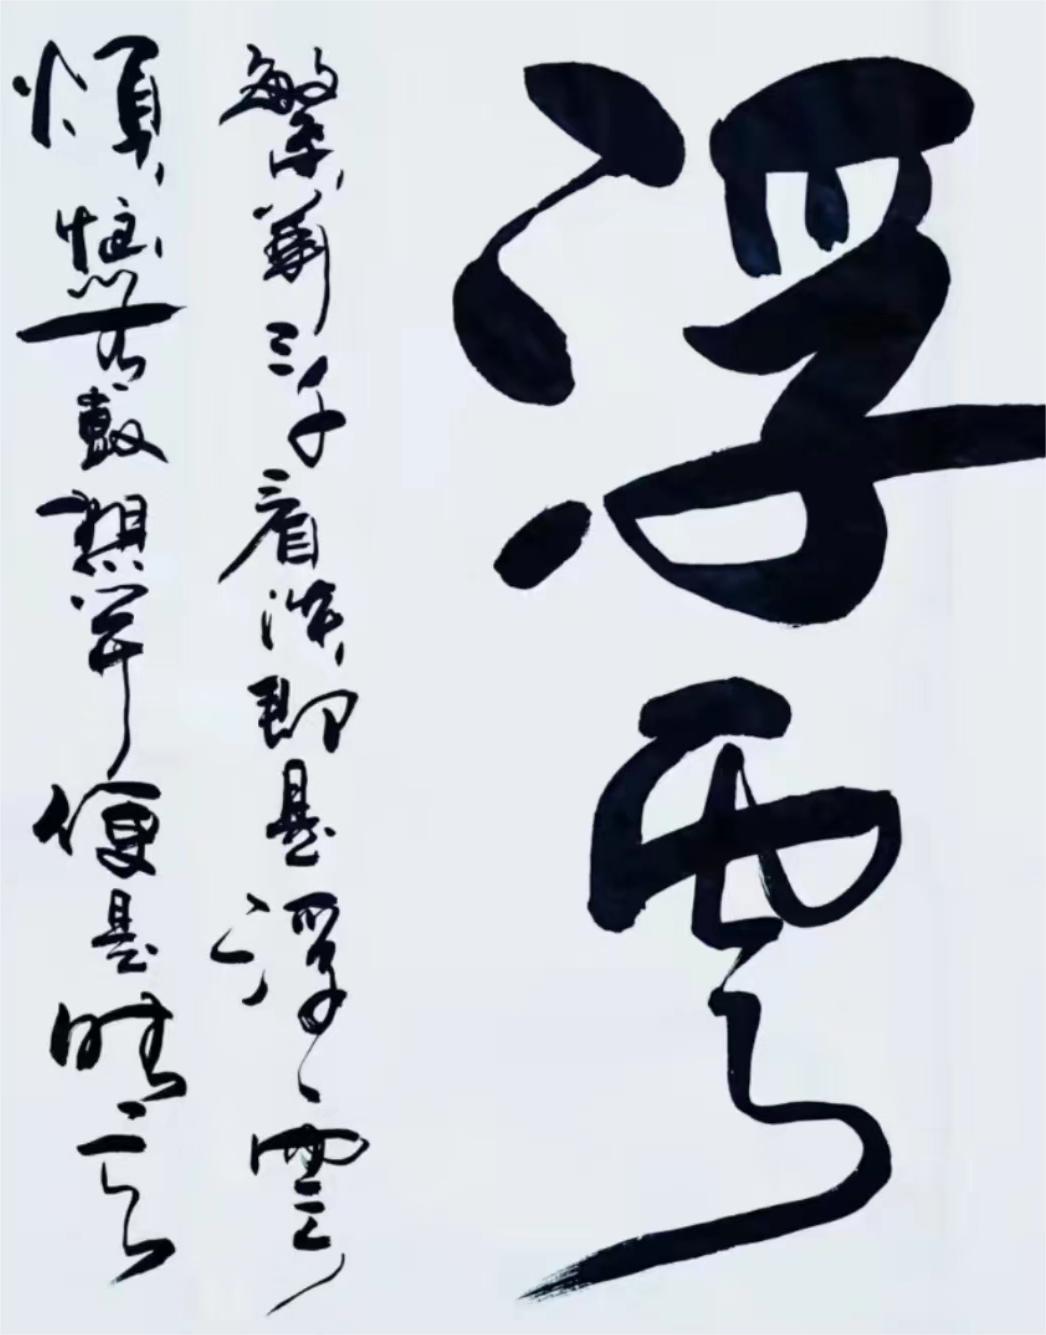 浮雲
繁華三千看淡即是浮雲
煩惱无數想開便是晴天